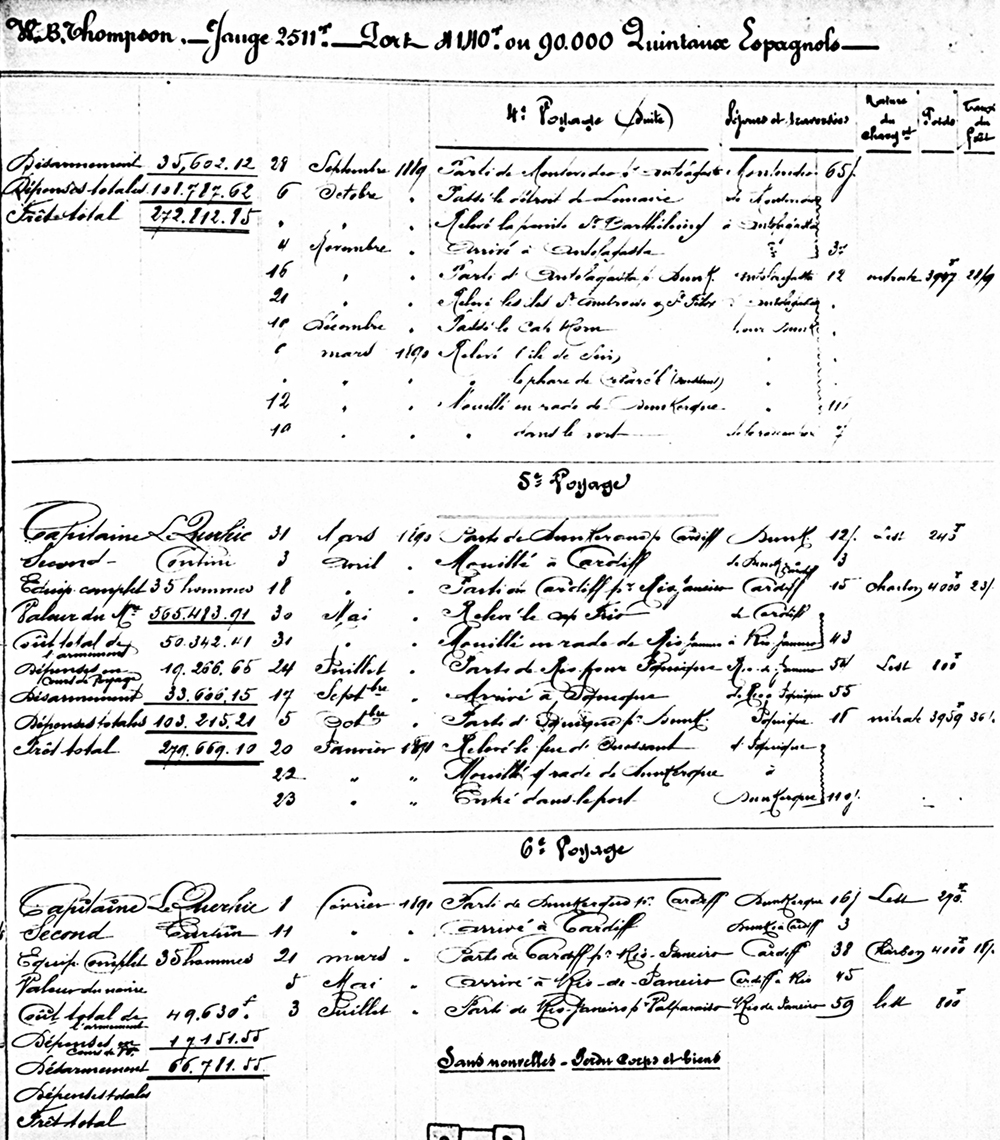 W. B. Thompson. — Jauge 2511ᵀ. — Port 4140ᵀ ou 90.000 Quintaux Espagnols —
4ᵉ Voyage (Suite) Séjours et traversées Nature du Chargᵗ Poids du frêt
Désarmement 35,602.12 28 Septembre 1889 Parti de Montevideo pʳ Antofagasta Montevideo 65 j
Dépenses totales 108.787.62 6 Octobre " Passé le détroit de Lemaire de Montevideo
Frêt total 272.812.85 " " Relevé la pointe Sᵗ Barthélemy à Antofagasta
4 Novembre " Arrivé à Antofagasta
16 " " Parti d'Antofagasta pʳ Dunk. Antofagasta 12 nitrate
21 " " Relevé les îles Sᵗ Ambroise & Sᵗ Félix d'Antofagasta
10 Décembre " Passé le Cap Horn pour Dunk
6 mars 1890 Relevé l'île de Sein
" " " " le phare de
12 " " Mouillé en rade de Dunkerque
" " " dans le port
5ᵉ Voyage
Capitaine Le Querhic 31 Mars 1890 Parti de Dunkerque pʳ Cardiff Dunk 12 j. Lest 245ᵀ
Second - 3 avril " Mouillé à Cardiff de Dunk à Cardiff 3
Equip. complet 35 hommes 18 " Parti de Cardiff pʳ Rio-Janeiro Cardiff 15 charbon 4000ᵀ 23/
Valeur du Nʳᵉ 565.483.91 30 Mai " Relevé le cap Frio de Cardiff
Coût total de l'armement 50.342.41 31 " " Mouillé en rade de Rio Janeiro à Rio Janeiro 43
Dépenses en Cours de Voyage 19.266.65 24 Juillet " Parti de Rio pour Iquique Rio de Janeiro 54 Lest 800ᵀ
Désarmement 33.606,15 17 Septᵇʳᵉ " Arrivé à Iquique de Rio à Iquique 55
Dépenses totales 103.215.21 5 Octᵇʳᵉ " Parti d'Iquique pʳ Dunk. Iquique 18 nitrate 3959 36/
Frêt total 279.669.10 20 Janvier 1891 Relevé le feu d'Ouessant d'Iquique
22 " " Mouillé en rade de Dunkerque à
23 " " Entré dans le port Dunkerque 110 j.
6ᵉ Voyage
Capitaine Le Querhic 1 février 1891 Parti de Dunkerque pʳ Cardiff Dunkerque 16 j Lest 290ᵀ
Second 11 " " arrivé à Cardiff Dunk à Cardiff 3
Equip. Complet 35 hommes 21 mars " Parti de Cardiff pʳ Rio-Janeiro Cardiff 38 Charbon 4000ᵀ 18/
Valeur du navire 5 Mai " arrivé à Rio-de-Janeiro Cardiff à Rio 45
Coût total de l'armement 49.630ᶠ. 3 Juillet " Parti de Rio-Janeiro pʳ Valparaiso Rio de Janeiro 59 lest 800ᵀ
Dépenses en Cours de V. 17151.55
Désarmement 66.781.55 Sans nouvelles - Perdu Corps et biens
Dépenses totales
Frêt total